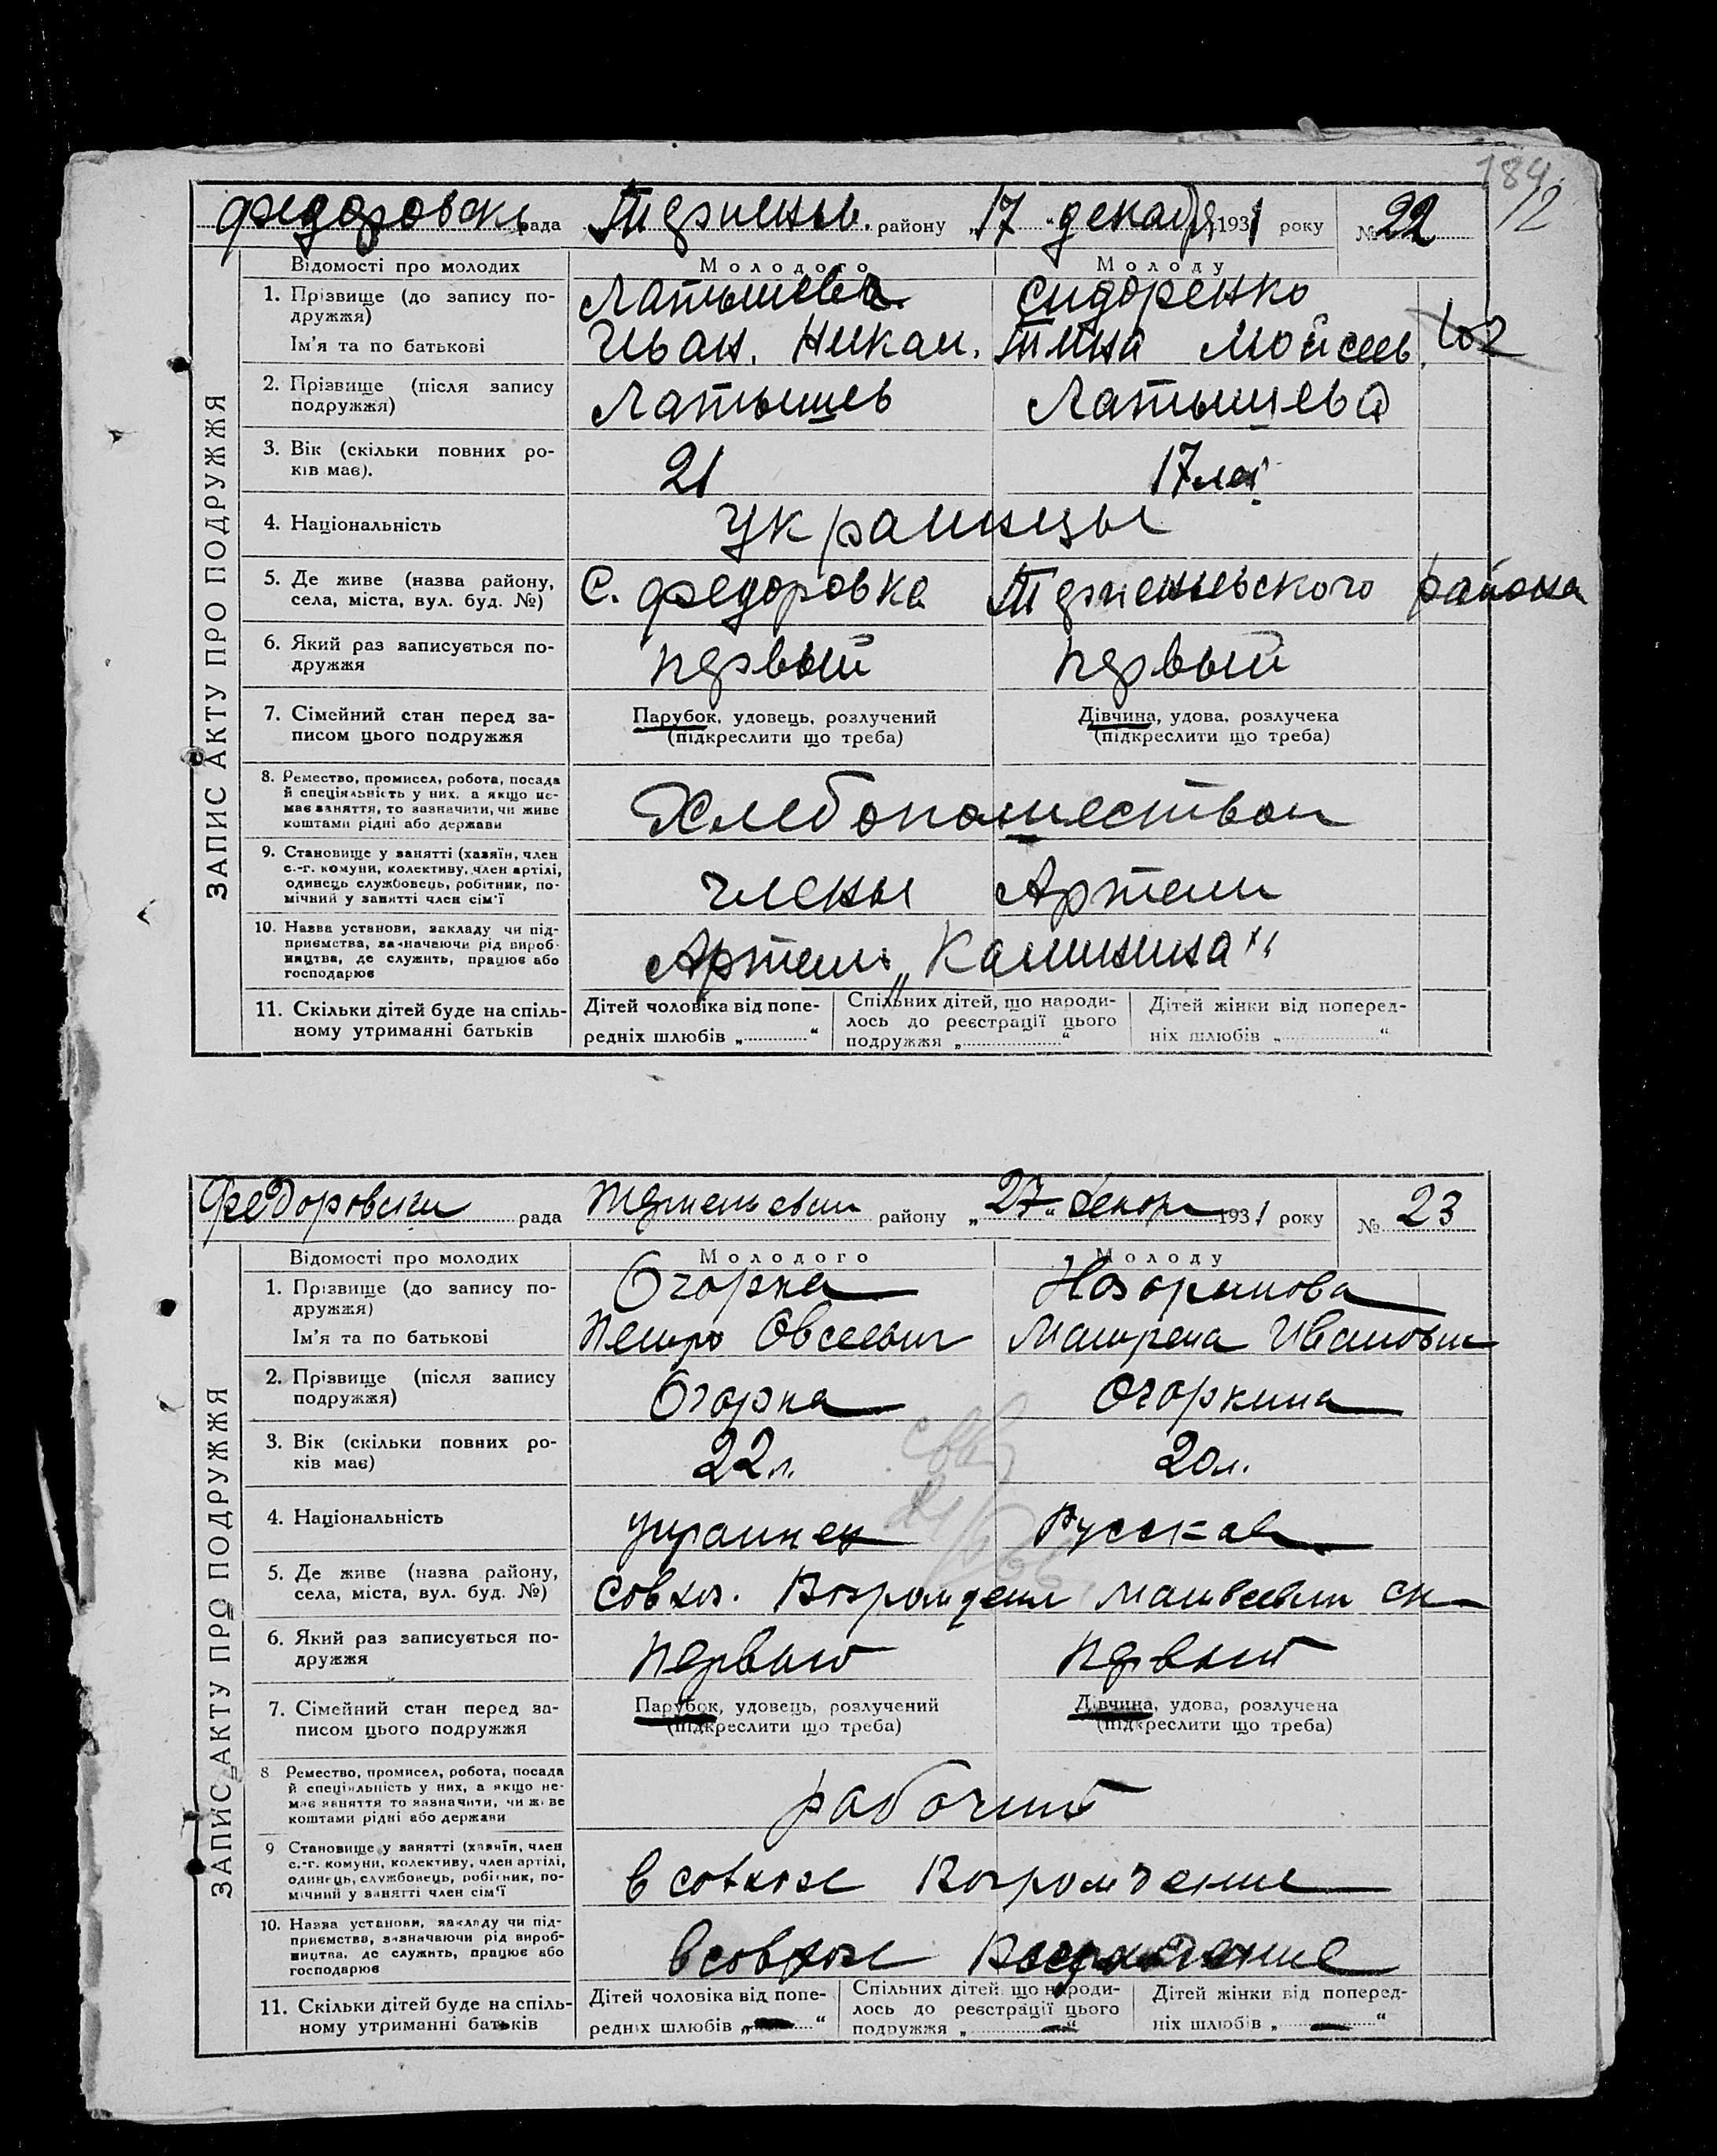 184
12
Федоровск рада Терпеньев. району „17 “ декабр 1931 року № 22
Відомості про молодих Молодого Молоду
1. Прізвище (до запису по-
дружжя) Латышев Сидоренко
Ім'я та по батькові Иван. Никан. Тина Мойсеев.
2. Прізвище (після запису
подружжя) Латышев Латышева
3. Вік (скільки повних ро-
ків має). 21 17 лет
4. Національність Украинцы
5. Де живе (назва району,
села, міста, вул. буд. №) С. Федоровка Терпеньевского района
6. Який раз записується по-
дружжя первый первый
7. Сімейний стан перед за-
писом цього подружжя Парубок, удовець, розлучений
(підкреслити що треба) Дівчина, удова, розлучека
(підкреслити що треба)
8. Ремество, промисел, робота, посада
й спеціяльність у них, а якщо не-
має заняття, то зазначити, чи живе
коштами рідні або держави Хлебопашеством
9. Становище у занятті (хазяїн, член
с.-г. комуни, колективу, член артілі,
одинець службовець, робітник, по-
мічний у занятті член сім'ї члены Артели
10. Назва установи, закладу чи під-
приємства, зазначаючи рід вироб-
ництва, де служить, працює або
господарює Артель „Калинина“
11. Скільки дітей буде на спіль-
ному утриманні батьків Дітей чоловіка від попе-
редніх шлюбів „ “ Спільних дітей, що народи-
лось до реєстрації цього
подружжя „ “ Дітей жінки від поперед-
ніх шлюбів „ “
ЗАПИС АКТУ ПРО ПОДРУЖЖЯ
Федоровски рада Терпеньевск району „27“ декабр 1931 року № 23
Відомості про молодих Молодого Молоду
1. Прізвище (до запису по-
дружжя) Огорка
Ім'я та по батькові Петро Овсеевич Матрена Ивановн
2. Прізвище (після запису
подружжя) Огорка Огоркина
3. Вік (скільки повних ро-
ків має) 22 л. 20 л.
4. Національність украинец Русская
5. Де живе (назва району,
села, міста, вул. буд. №) Совхоз. Возрождения
6. Який раз записується по-
дружжя первый первый
7. Сімейний стан перед за-
писом цього подружжя Парубок, удовець, розлучений
(підкреслити що треба) Дівчина, удова, розлучена
(підкреслити що треба)
8 Ремество, промисел, робота, посада
й спеціяльність у них, а якщо не-
має заняття то зазначити, чи живе
коштами рідні або держави рабочий
9 Становище у занятті (хазяїн, член
с.-г. комуни, колективу, член артілі,
одинець, службовець, робітник, по-
мічний у занятті член сім'ї в совхозе Возрождение
10. Назва установи, закладу чи під-
приємства, зазначаючи рід вироб-
ництва, де служить, працює або
господарює в совхозе Возрождение
11. Скільки дітей буде на спіль-
ному утриманні батьків Дітей чоловіка від попе-
редніх шлюбів „ “ Спільних дітей, що народи-
лось до реєстрації цього
подружжя „ “ Дітей жінки від поперед-
ніх шлюбів „ “
ЗАПИС АКТУ ПРО ПОДРУЖЖЯ